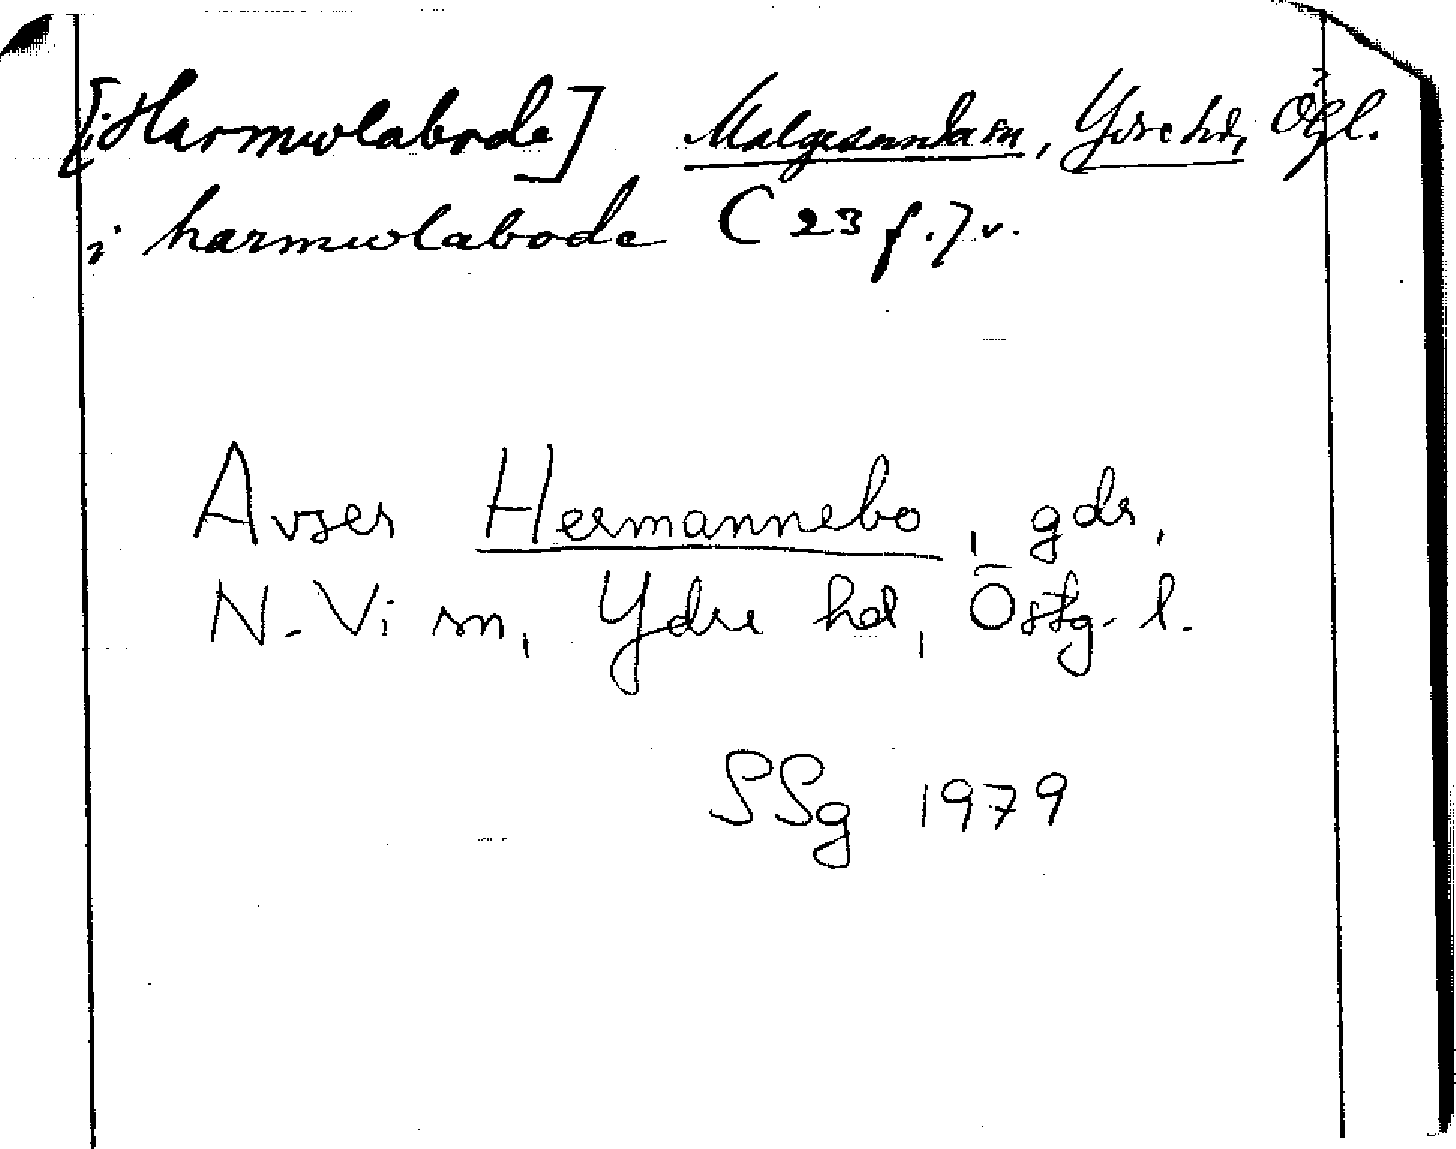 [i Harmwlabode] Malgesanda sn, Ydre hd, Ögl.
i harmwlabode C 23 f. 7 v.
Avser Hermannebo, gdr,
N. Vi sn, Ydre hd, Östg. l.
SSg 1979